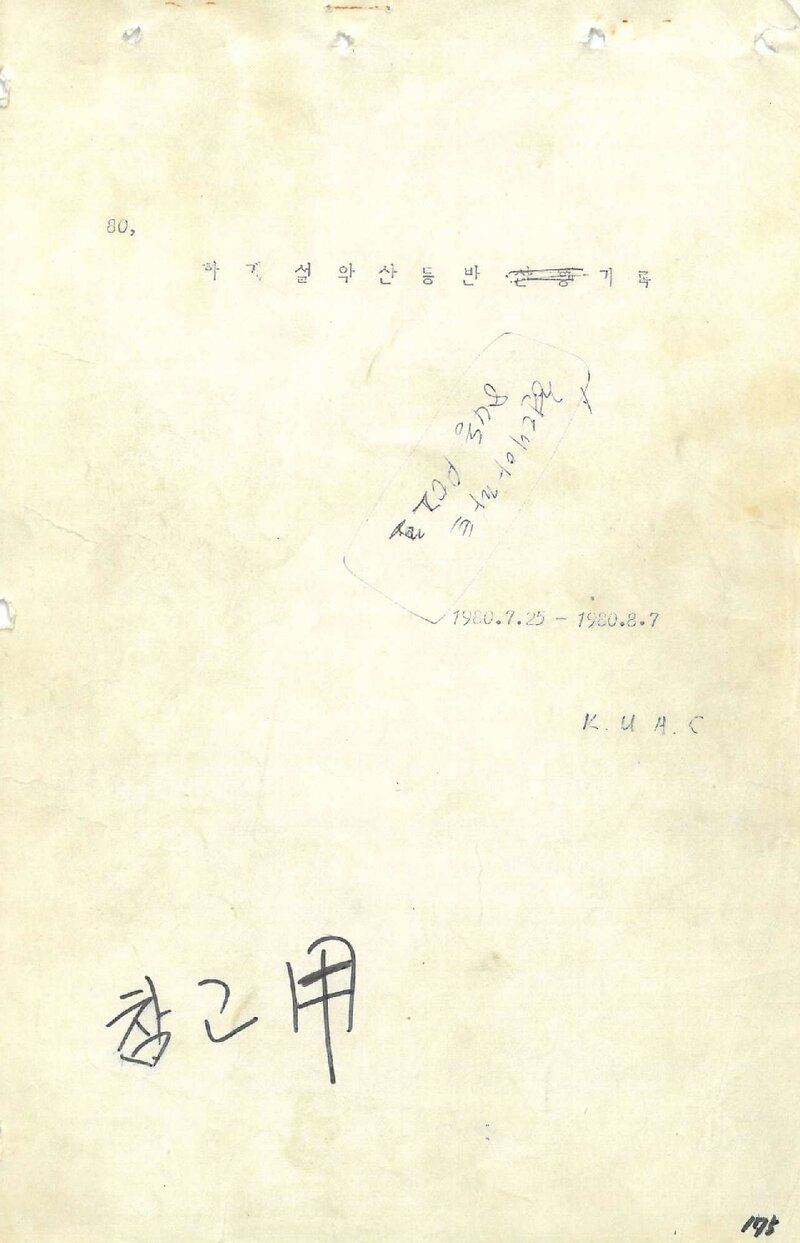 80,
하 기 설 악 산 등 반 산 행 기 록
1980.7.25 - 1980.8.7
K. U A. C
참고用
175